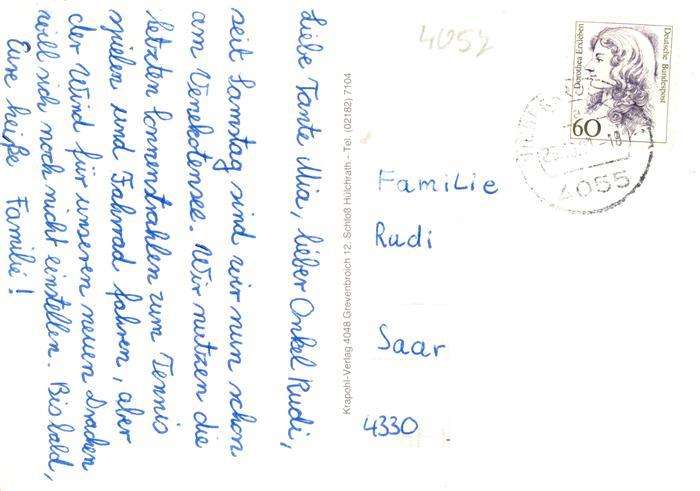 Liebe Tante Mia, lieber Onkel Rudi,
seit Samstag sind wir nun schon
am Venekotensee. Wir nutzen die
letzten Sonnenstrahlen zum Tennis
spielen und Fahrrad fahren, aber
der Wind für unseren neuen Drachen
will sich noch nicht einstellen. Bis bald,
Eure heiße Familie!
Krapohl-Verlag 4048 Grevenbroich 12. Schloß Hülchrath - Tel. (02182) 7104
4052
Deutsche Bundespost
C.Dorothea Erxleben
60
-18
4055
Familie
Rudi
Saar
4330